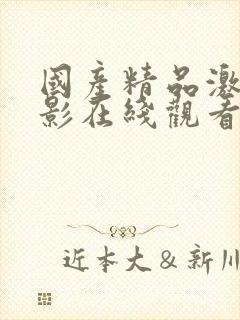 國産精品激
影在綫觀看
近本大&新川